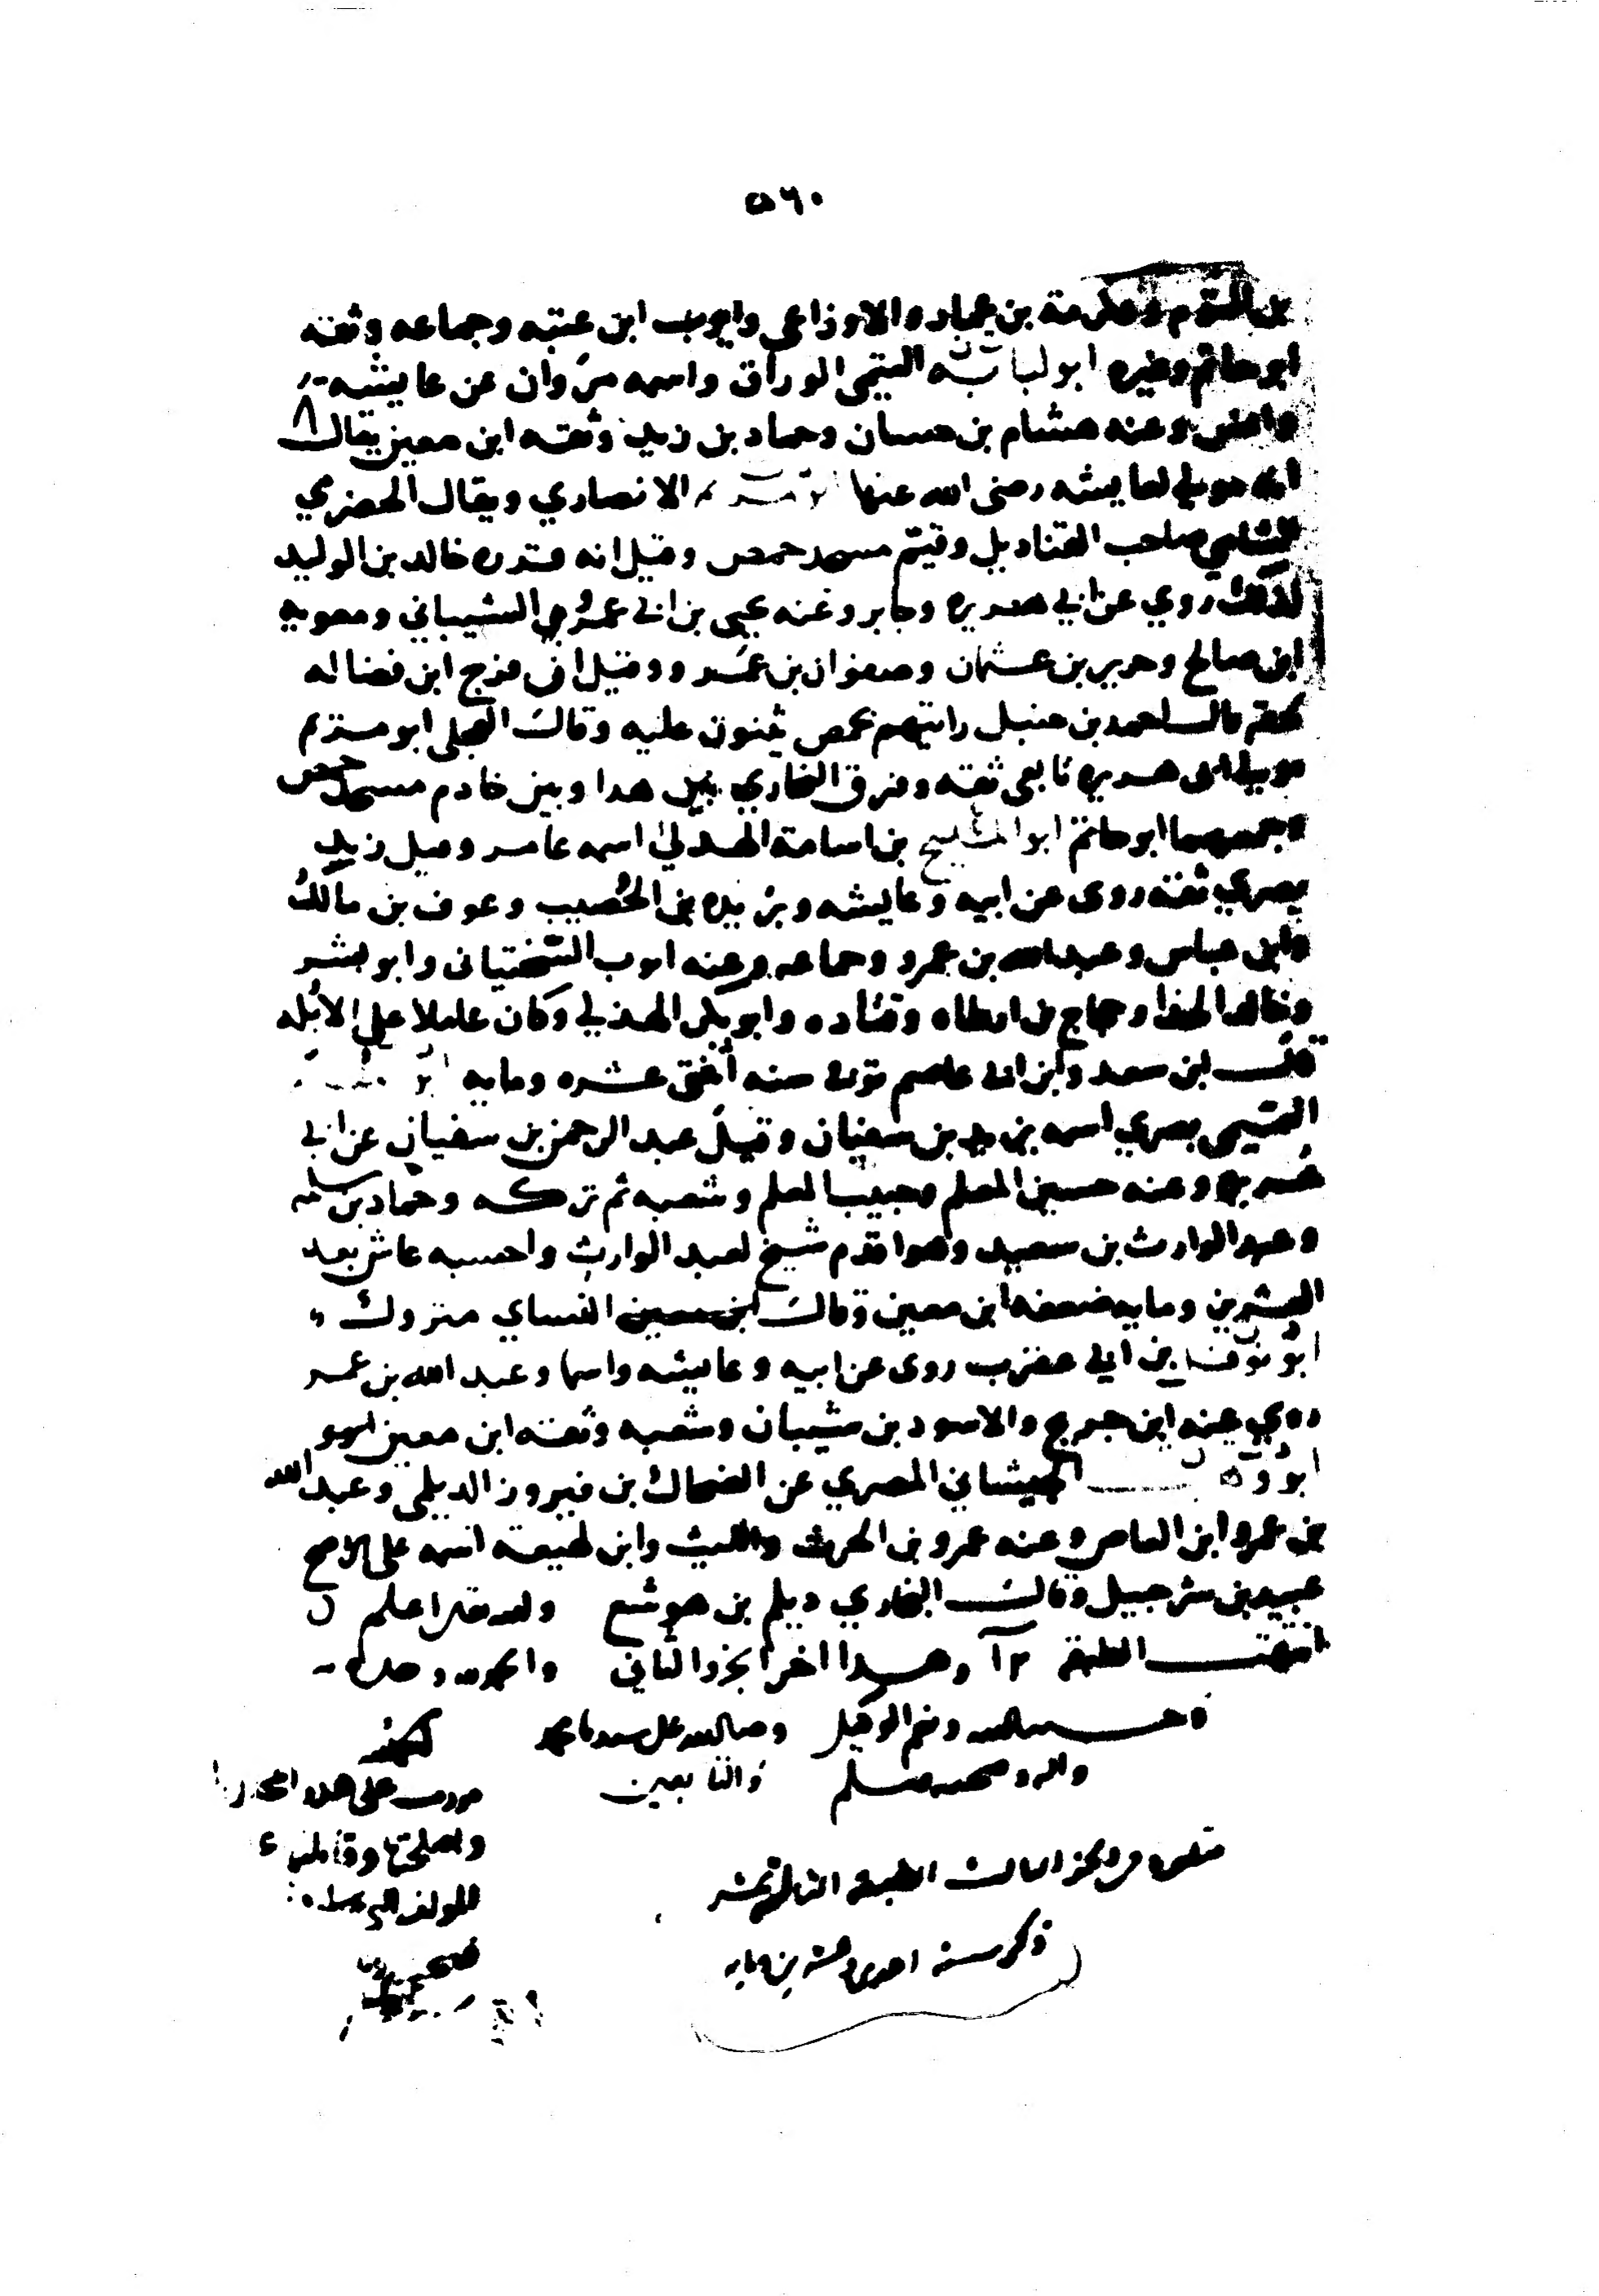 ٥٦٠
وعكرمة بن عمار والاوزاعى وايوب ابن عتبه وجماعه وثقه
ابو حاتم وغيره ابو لبابه التيمى الوراق واسمه مروان عن عايشه
وانس وعنه هشام بن حسان وحماد بن زيد وثقه ابن معين يقال
انه مولى لعايشه رضى الله عنها الانصاري ويقال الحضرمي
الشامي صاحب القناديل وقيم مسجد حمص وقيل انه خالد بن الوليد
لذلك روي عن ابي هريره وجابر وعنه يحيى بن ابى عمرو الشيباني ومعويه
ابن صالح وحريز بن عثمان وصفوان بن عمرو وقيل ان فرج ابن فضاله
لحقه قال احمد بن حنبل رايتهم بحمص يثنون عليه وقال العجلى ابو مريم
مولى ابى هريره تابعى ثقه وفرق البخاري بين هدا وبين خادم مسجد حمص
وجمعهما ابو حاتم ابو المليح بن اسامة الهدلي اسمه عامر وقيل زيد
بصري ثقه روى عن ابيه وعايشه وبريده بن الحصيب وعوف بن مالك
وابن عباس وعبد الله بن عمرو وجماعه وعنه ايوب السختيانى وابو بشر
وخالد الحذا وحجاج بن ارطاه وقتاده وابو بكر الهذلي وكان عاملا على الابله
قال ابن سعد وابن ابى عاصم توفى سنه اثنتى عشره ومايه
التميمى بصري اسمه يزيد بن سفيان وقيل عبد الرحمن بن سفيان عن ابي
هريره وعنه حسين المعلم وحبيب المعلم وشعبه ثم تركه وحماد بن سلمه
وعبد الوارث بن سعيد وهو اقدم شيخ لعبد الوارث واحسبه عاش بعد
العشرين ومايه ضعفه ابن معين وقال النساي متروك
ابو نوفل بن ابي عقرب روى عن ابيه وعايشه واسما وعبد الله بن عمر
روي عنه ابن جريج والاسود بن شيبان وشعبه وثقه ابن معين
ابو وهب الجيشاني المصري عن الضحاك بن فيروز الديلمى وعبد الله
بن عمرو ابن العاص وعنه عمرو بن الحرث والليث وابن لهيعه اسمه على الاصح
عبيد بن شرحبيل وقال البخاري ديلم بن هوشع والله تعلى اعلم
انتهت الطبقه ١٢ وهدا اخر الجزو الثاني والحمد لله وحده
وحسبنا الله ونعم الوكيل وصلى الله على سيدنا محمد
واله وصحبه وسلم والتابعين
يتلوه فى الجز الثالث الطبقه الثالثة عشر
ذكر سنه احدى وعشرين ومايه
مررت على هدا المجلد
واصلحته وقابلته